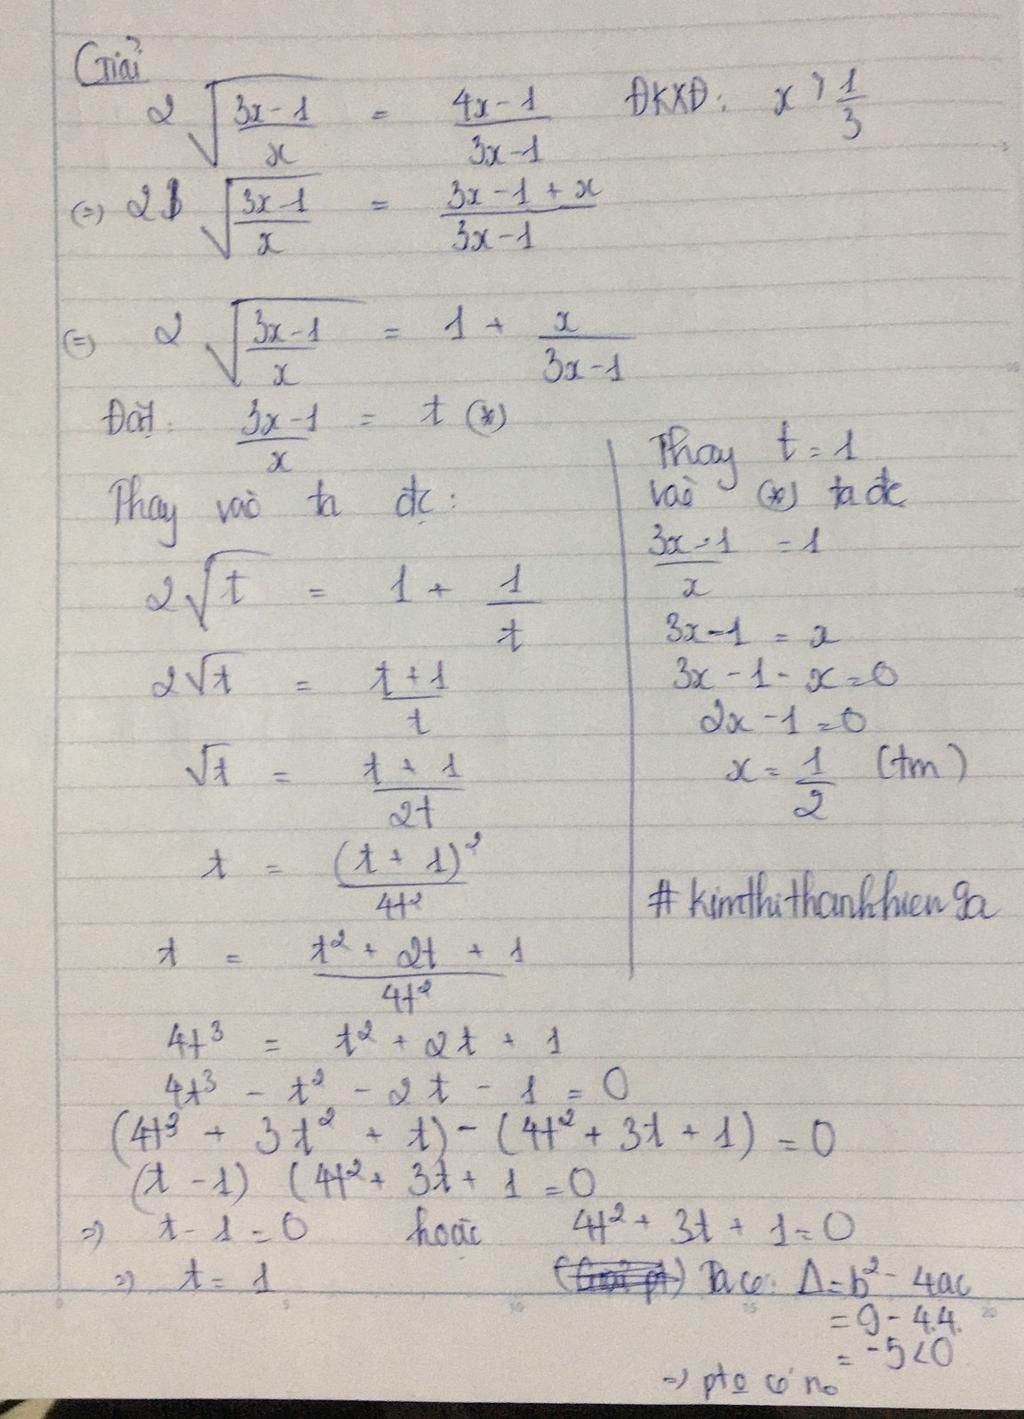 Giải
2 √((3x-1)/x) = (4x-1)/(3x-1) ĐKXĐ: x > 1/3
(=) 2 √((3x-1)/x) = (3x-1+x)/(3x-1)
(=) 2 √((3x-1)/x) = 1 + x/(3x-1)
Đặt: (3x-1)/x = t (*)
Thay vào ta đc:
2√t = 1 + 1/t
2√t = (t+1)/t
√t = (t+1)/2t
t = (t+1)²/4t²
t = (t² + 2t + 1)/4t²
4t³ = t² + 2t + 1
4t³ - t² - 2t - 1 = 0
(4t³ + 3t² + t) - (4t² + 3t + 1) = 0
(t - 1) (4t² + 3t + 1 = 0
=) t - 1 = 0 hoặc 4t² + 3t + 1 = 0
=) t = 1 Ta có: Δ = b² - 4ac
= 9 - 4.4.
= -5 < 0
=) pt o có no
Thay t = 1
vào (*) ta đc
(3x-1)/x = 1
3x-1 = x
3x - 1 - x = 0
2x - 1 = 0
x = 1/2 (tm)
#kimthithanhhien9a